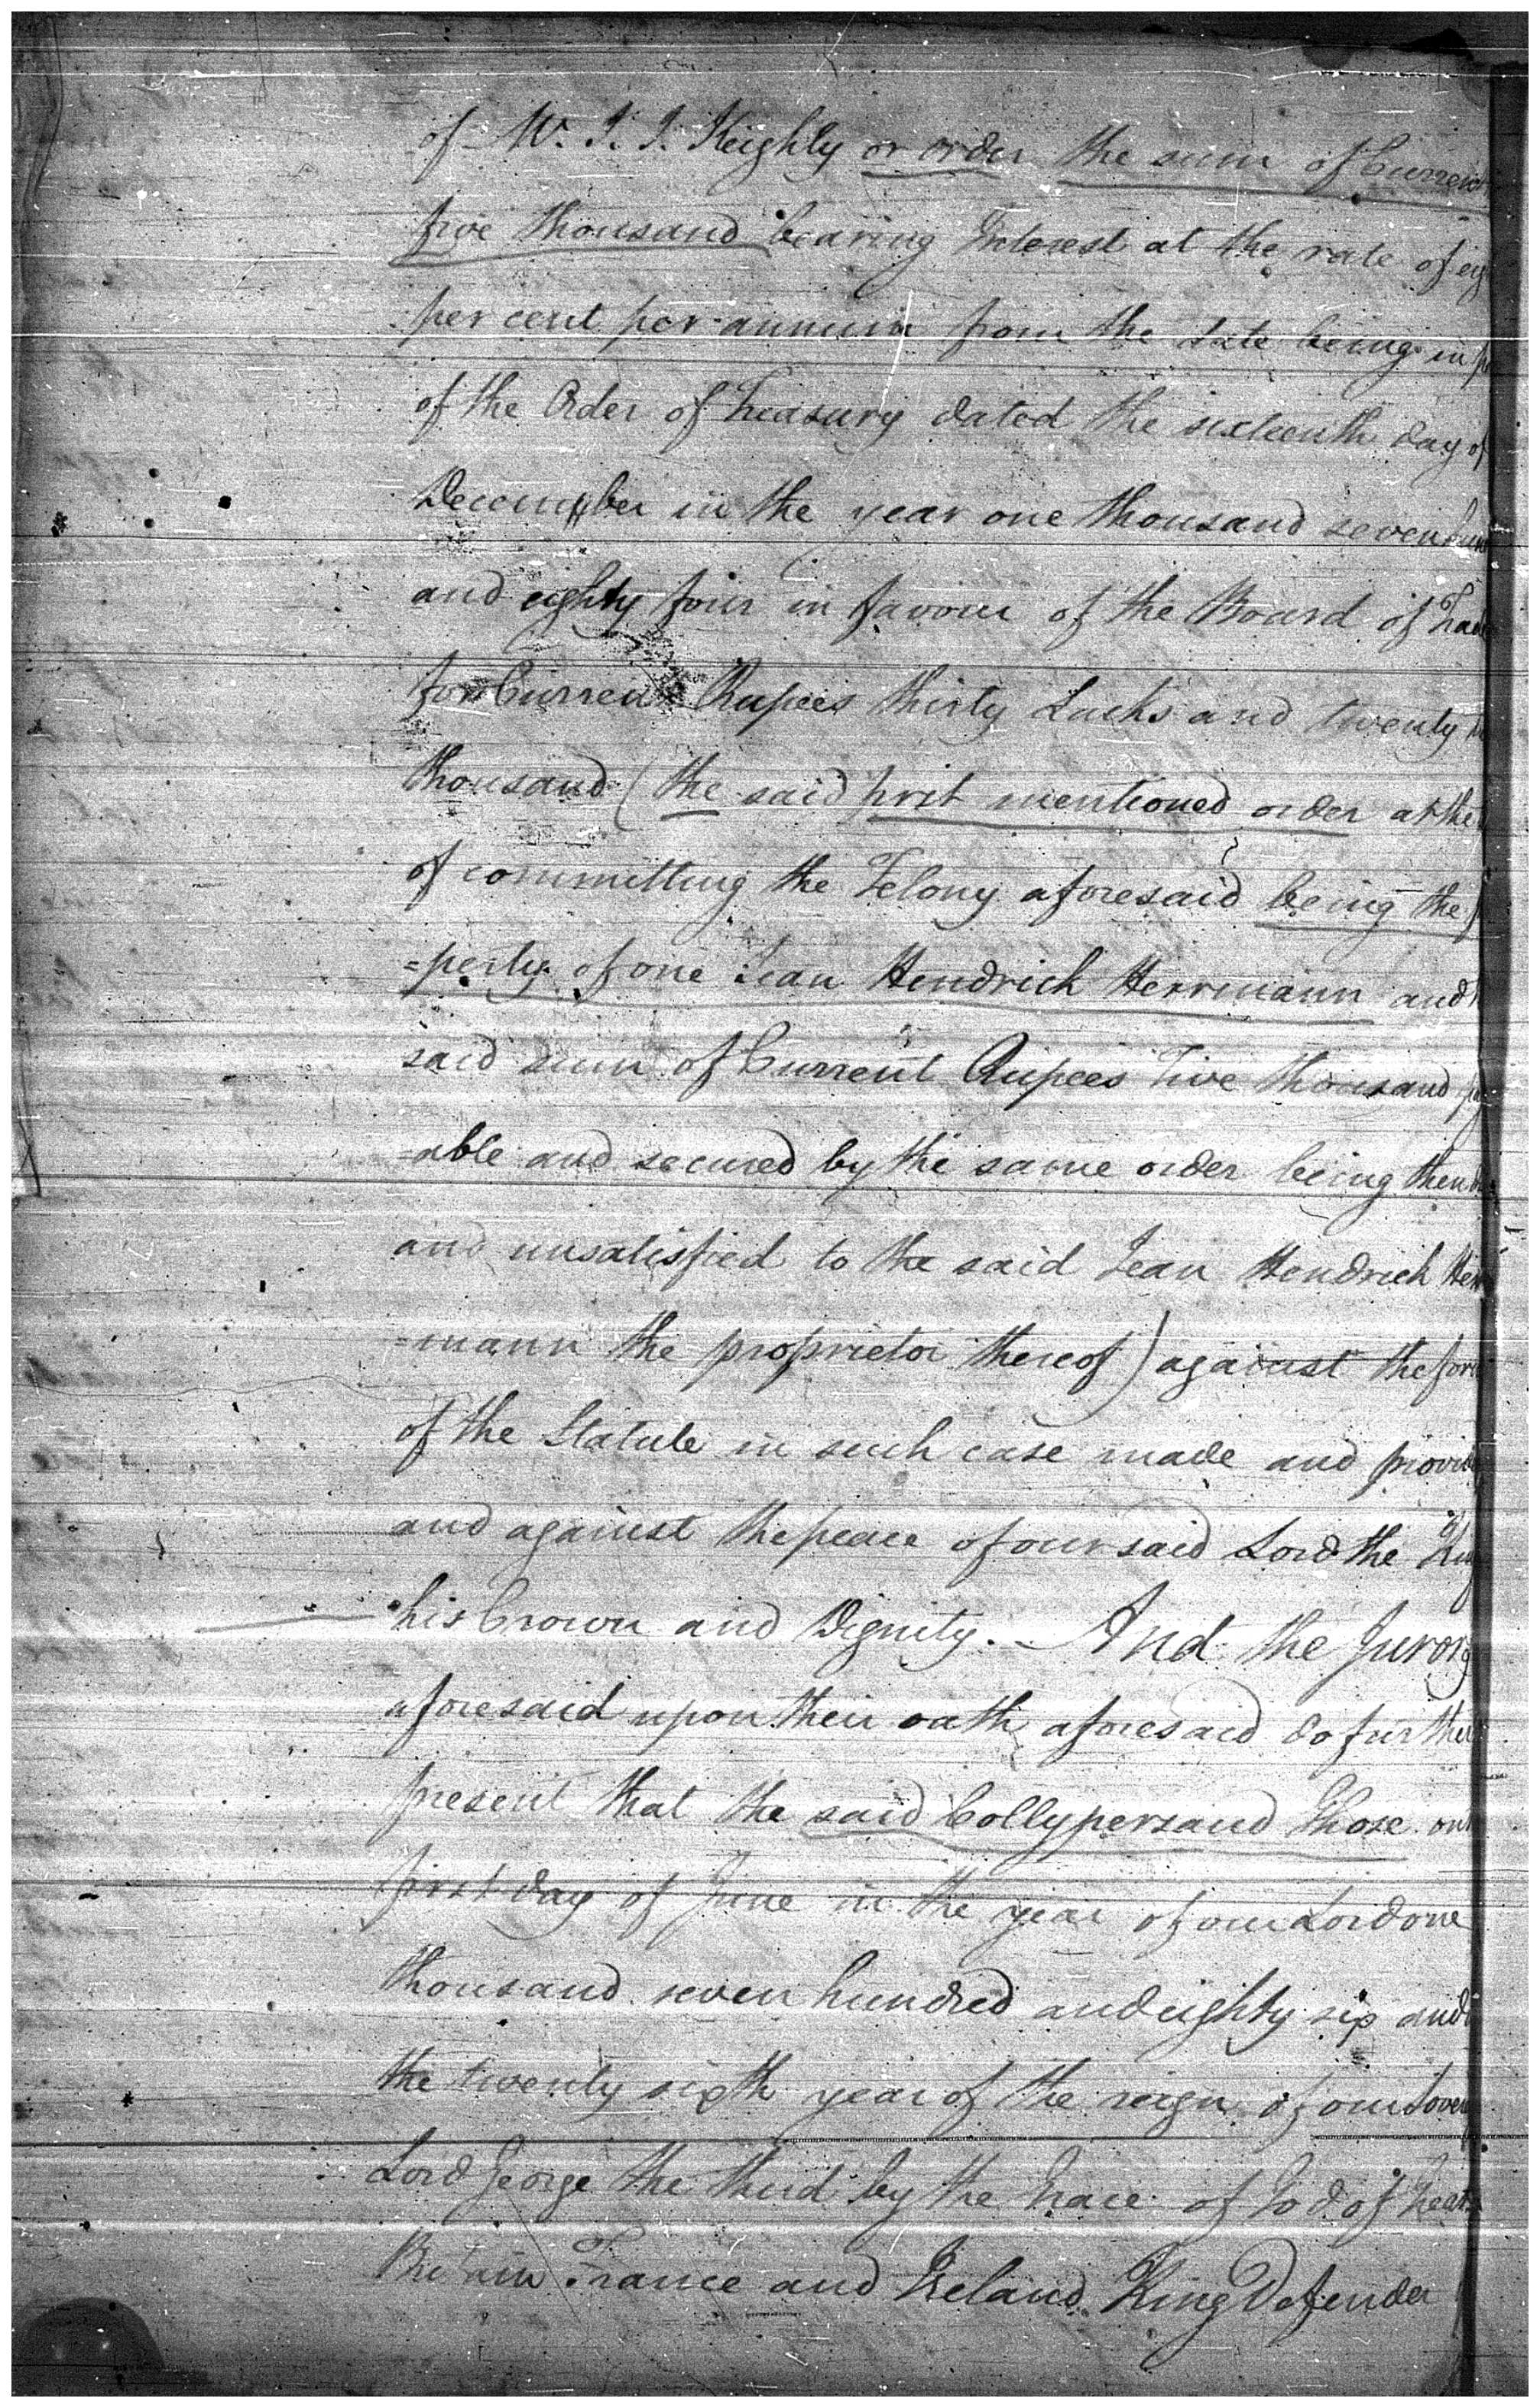 of Mr. J. J. Keighly or order the sum of Current
five thousand bearing Interest at the rate of eig
per cent per annum from the date being in p
of the Order of Treasury dated the sixteenth day of
December in the year one thousand seven hun
and eighty four in favour of the Board of Trade
for Current Rupees thirty Lacks and twenty
thousand (the said first mentioned order at the
of committing the Felony aforesaid being the p
=perty of one Jean Hendrich Herrmann and
said sum of Current Rupees Five thousand pay
=able and secured by the same order being then
and unsatisfied to the said Jean Hendrich Herr
=mann the proprietor thereof) against the form
of the Statute in such case made and provid
and against the peace of our said Lord the King
his Crown and Dignity. And the Jurors
aforesaid upon their oath aforesaid do further
present that the said Collypersaud Ghose on
first day of June in the year of our Lord one
thousand seven hundred and eighty six and
the twenty sixth year of the reign of our Sover
Lord George the third by the Grace of God of Great
Britain France and Ireland King Defender